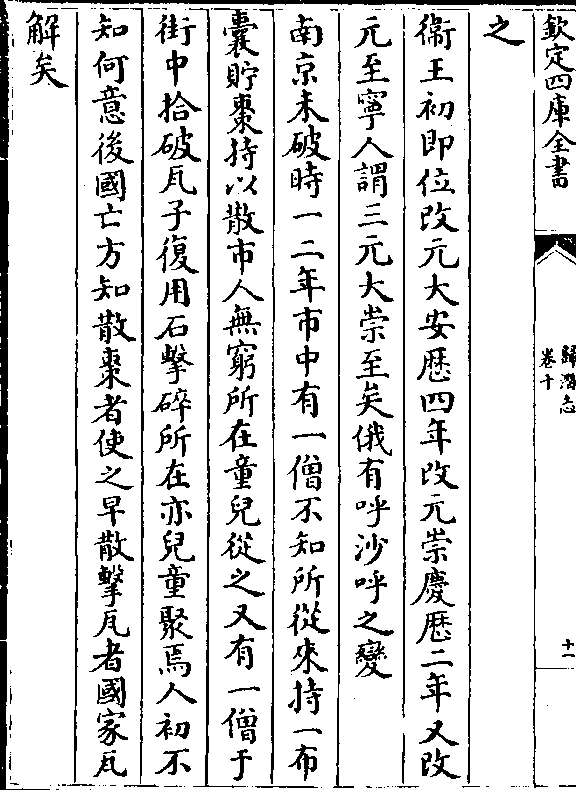 欽定四庫全書
歸潛志
卷十
十一
之
衞王初即位改元大安歴四年改元崇慶歴二年又改
元至寧人謂三元大崇至矣俄有呼沙呼之變
南京未破時一二年市中有一僧不知所從來持一布
囊貯棗持以散市人無窮所在童兒從之又有一僧于
街中拾破瓦子復用石擊碎所在亦兒童聚焉人初不
知何意後國亡方知散棗者使之早散擊瓦者國家瓦
解矣